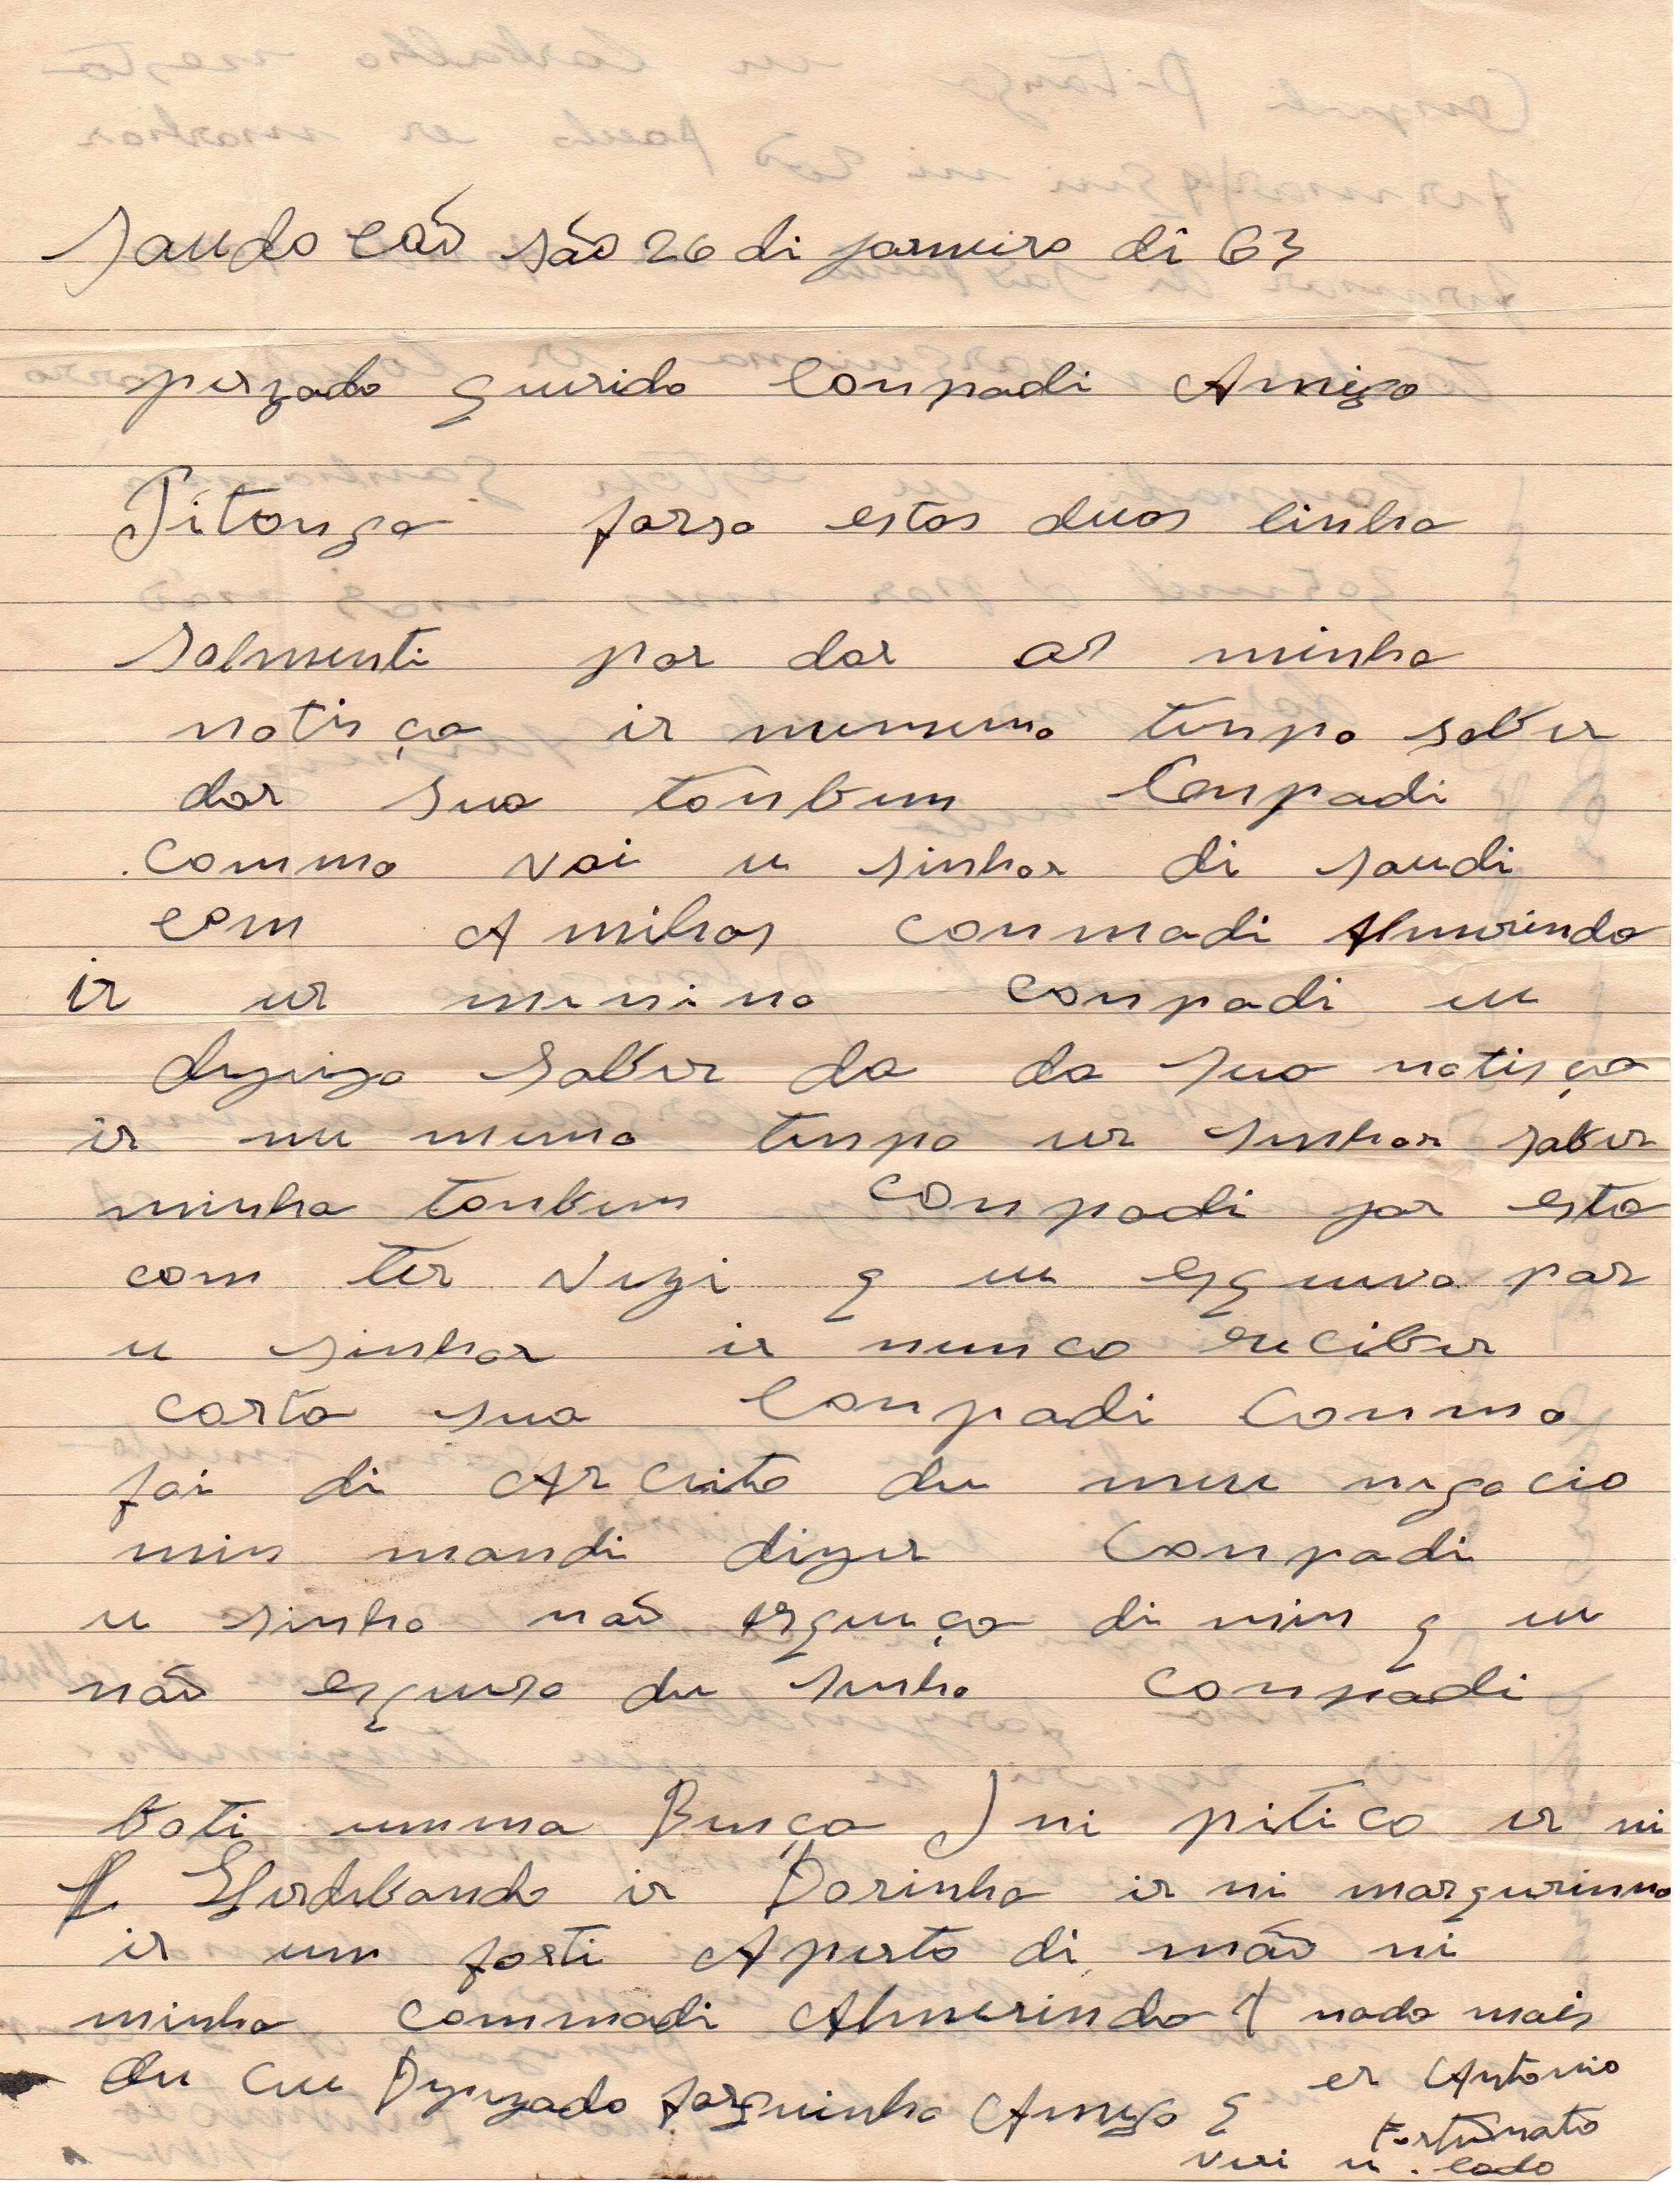 saudo cão são 26 di janneiro di 63
perzado querido conpadi Amigo
Pitanga farso estas duas linha
salmenti par dar as minha
notisça ir mumumo tenpo saber
dar sua tanbem Conpadi
commo vai u sinhor di saudi
com A milhas conmadi Almerinda
ir ur minino conpadi eu
dezeizo saber da da sua notisça
ir nu mumo tenpo ur sinhor saber
minha tanbem conpadi par esta
com ter vezi q eu esquevo par
u sinhor ir nunca reciber
carta sua Conpadi Conmo
foi di Arcuito du meu negocio
min mandi dizer Conpadi
u sinho não esqueça di min q eu
não esqueso du sinho conpadi
boti umma Bença ) ni pitico ir ni
ir Dorinha ir ni marquinno
ir um forti Aperto di mão ni
minha commadi Almerinda nada mais
du ceu Amigo q er Antonio
Fortunato
viri u lado